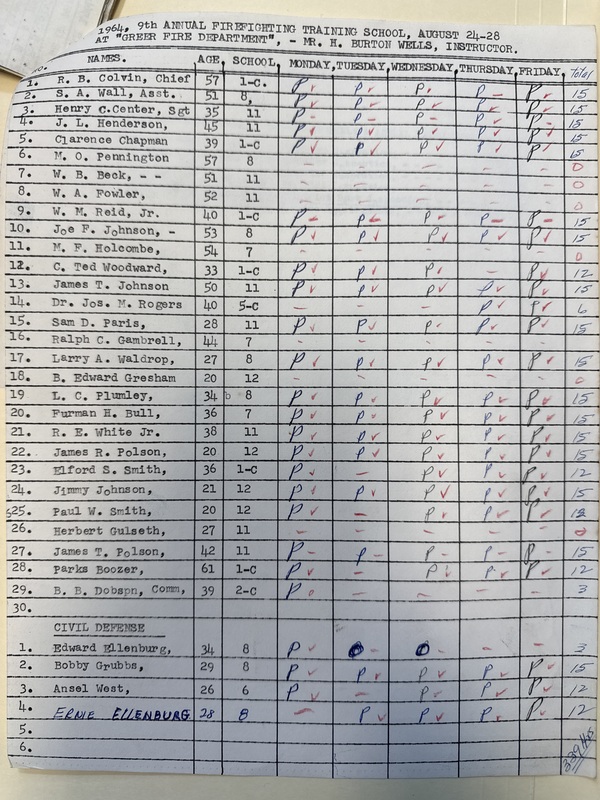 1964, 9th ANNUAL FIREFIGHTING TRAINING SCHOOL, AUGUST 24-28
AT "GREER FIRE DEPARTMENT", - MR. H. BURTON WELLS, INSTRUCTOR.
NO. NAMES. AGE, SCHOOL MONDAY, TUESDAY, WEDNESDAY, THURSDAY, FRIDAY. Total
1. R. B. Colvin, Chief 57 1-C. P P P. P P 15
2. S. A. Wall, Asst. 51 8, P P P P P 15
3. Henry C.Center, Sgt 35 11 P P P P P 15
4. J. L. Henderson, 45 11 P P P P P 15
5. Clarence Chapman 39 1-C P P P P P 15
6. M. O. Pennington 57 8 - - - - - 0
7. W. B. Beck, - - 51 11 - - - - - 0
8. W. A. Fowler, 52 11 - - - - - 0
9. W. M. Reid, Jr. 40 1-C P P P P P 15
10. Joe F. Johnson, - 53 8 P P P P P 15
11. M. F. Holcombe, 54 7 - - - - - 0
12. C. Ted Woodward, 33 1-C P P P - P 12
13. James T. Johnson 50 11 P P P P P 15
14. Dr. Jos. M. Rogers 40 5-C - - - P P 6
15. Sam D. Paris, 28 11 P P P P P 15
16. Ralph C. Gambrell, 44 7 - - - - -
17. Larry A. Waldrop, 27 8 P P P P P 15
18. B. Edward Gresham 20 12 - - - - - 0
19 L. C. Plumley, 34 b 8 P P P P P 15
20. Furman H. Bull, 36 7 P P P P P 15
21. R. E. White Jr. 38 11 P P P P P 15
22. James R. Polson, 20 12 P P P P P 15
23. Elford S. Smith, 36 1-C P - P P P 12
24. Jimmy Johnson, 21 12 P P P P P 15
25. Paul W. Smith, 20 12 P - P P P 12
26. Herbert Gulseth, 27 11 - - - - - 0
27. James T. Polson, 42 11 P P P P P 15
28. Parks Boozer, 61 1-C P - P P P 12
29. B. B. Dobspn, Comm, 39 2-C P - - - - 3
30.
CIVIL DEFENSE
1. Edward Ellenburg, 34 8 P - - - 3
2. Bobby Grubbs, 29 8 P P P P P 15
3. Ansel West, 26 6 P - P P P 12
4. ERNIE ELLENBURG 28 8 - P P P P 12
5.
6.
339 hrs